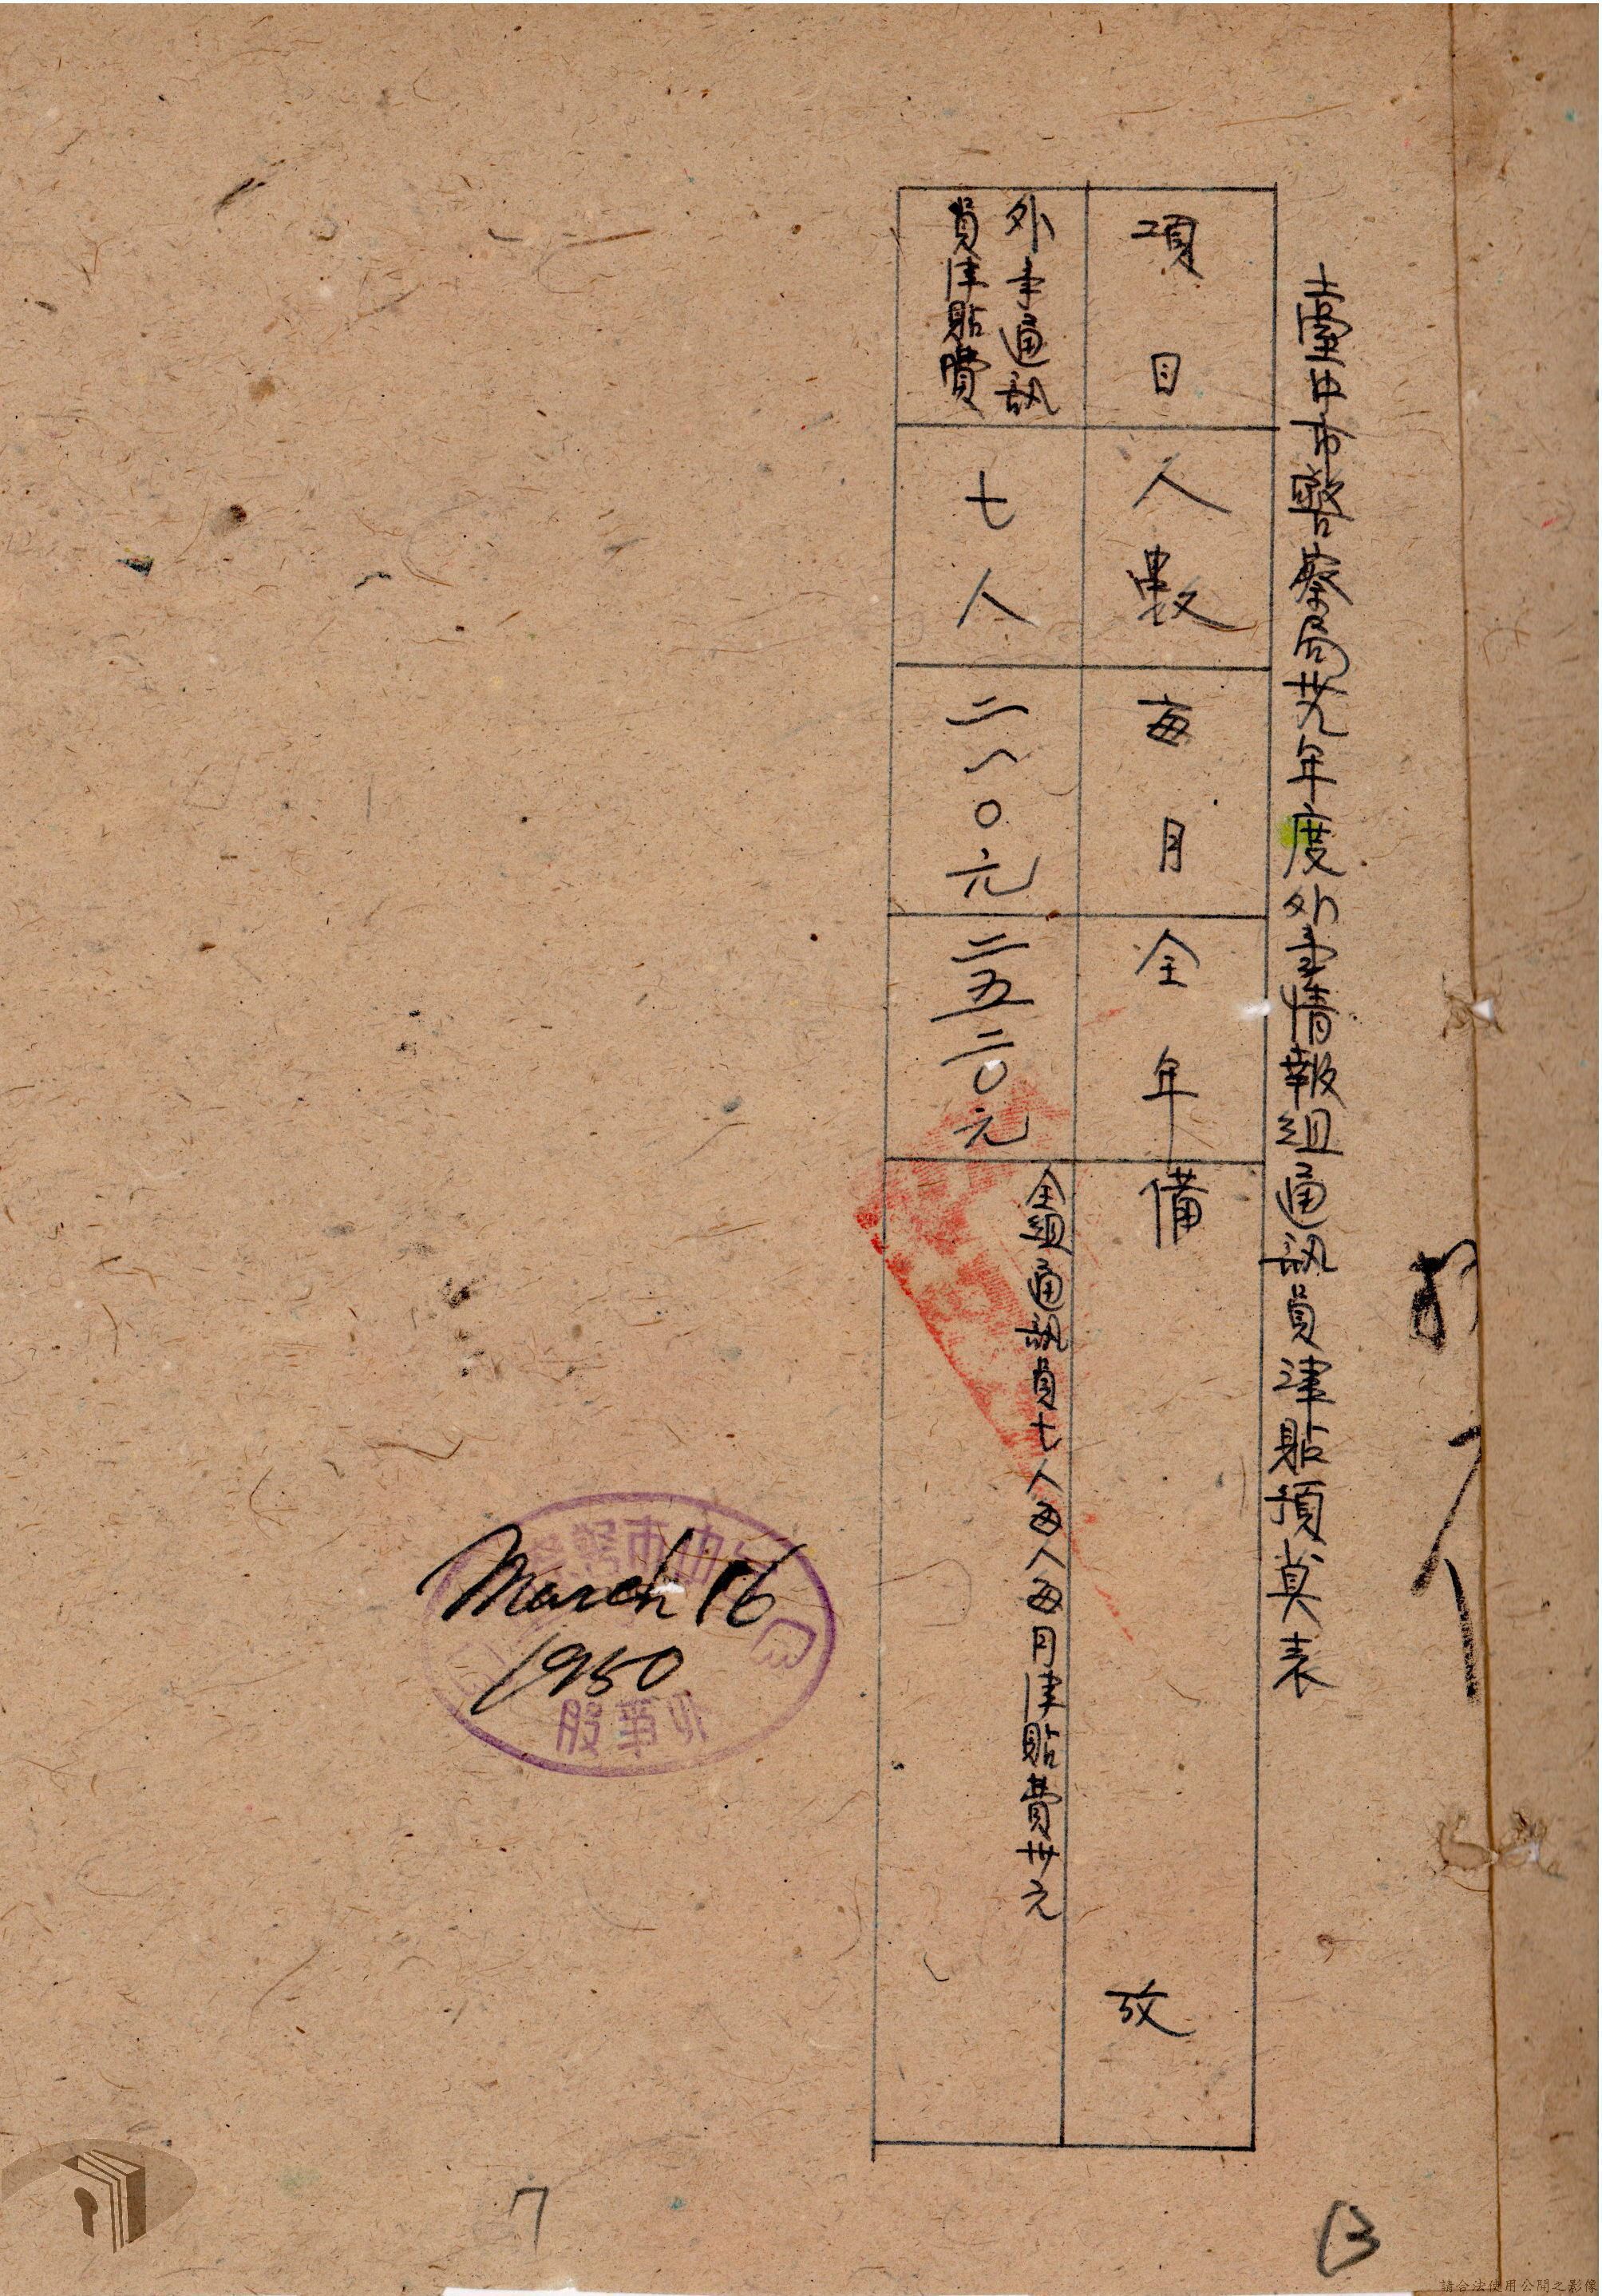 臺中市警察局卅九年度外事情報組通訊員津貼預算表
項目
人數
每月
全年
備攷
外事通訊
員津貼費
七人
二一〇元
二五二〇元
全組通訊員七人每人每月津貼費卅元
March 16
1950
外事股
7
13
請合法使用公開之影像